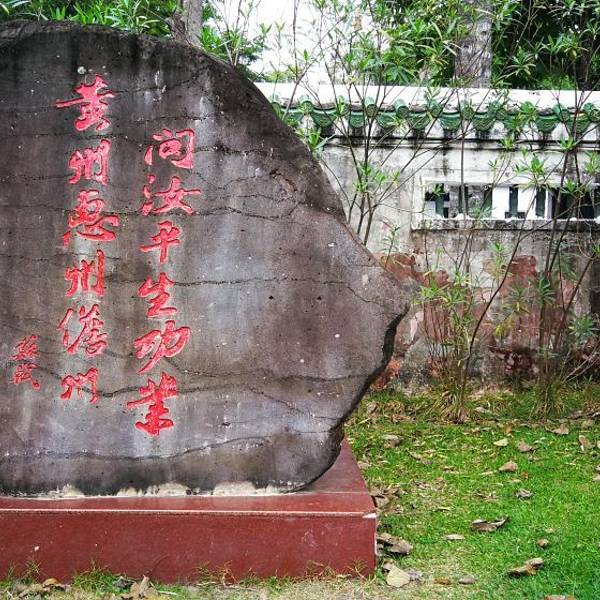 问汝平生功业
黄州惠州儋州
苏轼